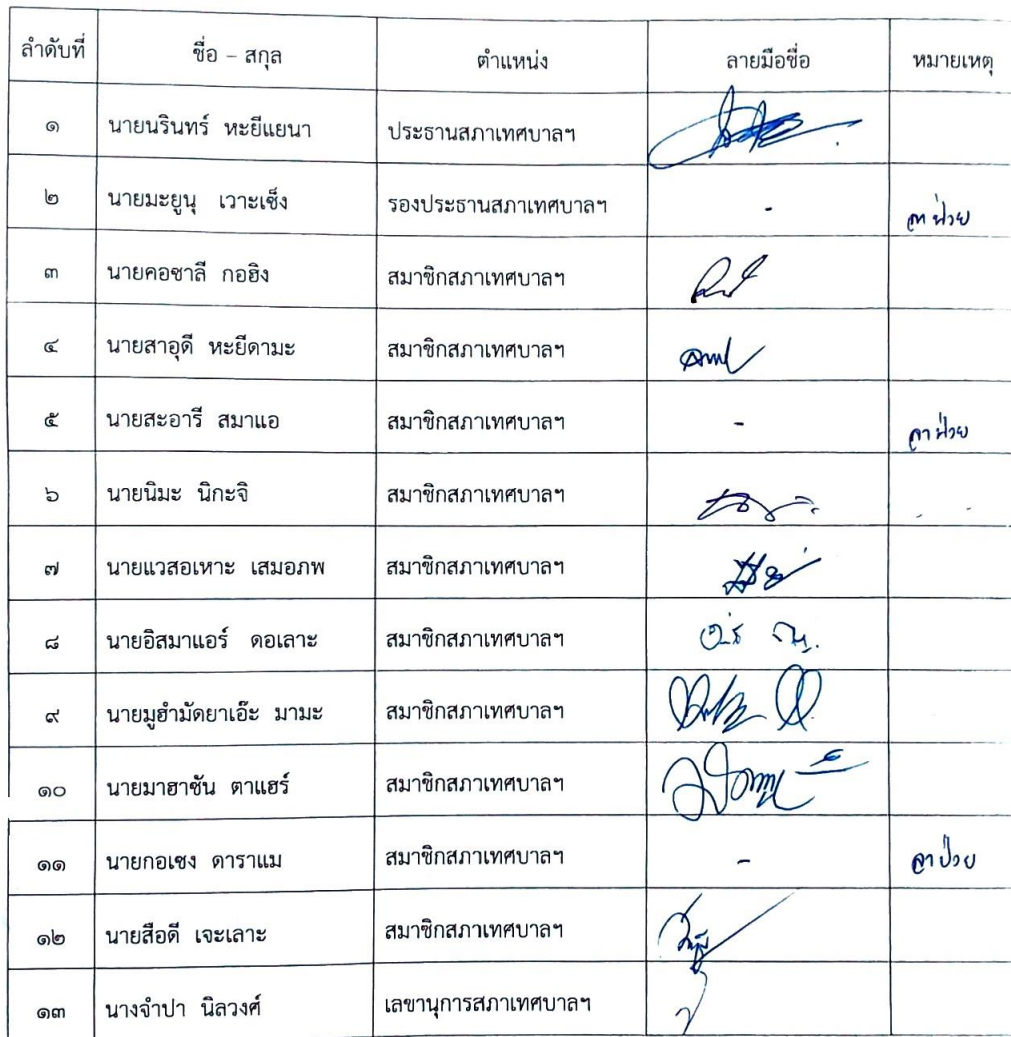 ลำดับที่ ชื่อ – สกุล ตำแหน่ง ลายมือชื่อ หมายเหตุ
๑ นายนรินทร์ หะยีแยนา ประธานสภาเทศบาลฯ
๒ นายมะยูนุ เวาะเซ็ง รองประธานสภาเทศบาลฯ - ลาป่วย
๓ นายคอซาลี กอฮิง สมาชิกสภาเทศบาลฯ
๔ นายสาอุดี หะยีดามะ สมาชิกสภาเทศบาลฯ
๕ นายสะอารี สมาแอ สมาชิกสภาเทศบาลฯ - ลาป่วย
๖ นายนิมะ นิกะจิ สมาชิกสภาเทศบาลฯ
๗ นายแวสอเหาะ เสมอภพ สมาชิกสภาเทศบาลฯ
๘ นายอิสมาแอร์ ดอเลาะ สมาชิกสภาเทศบาลฯ
๙ นายมูฮำมัดยาเอ๊ะ มามะ สมาชิกสภาเทศบาลฯ
๑๐ นายมาฮาซัน ตาแฮร์ สมาชิกสภาเทศบาลฯ
๑๑ นายกอเซง ดาราแม สมาชิกสภาเทศบาลฯ - ลาป่วย
๑๒ นายสือดี เจะเลาะ สมาชิกสภาเทศบาลฯ
๑๓ นางจำปา นิลวงศ์ เลขานุการสภาเทศบาลฯ